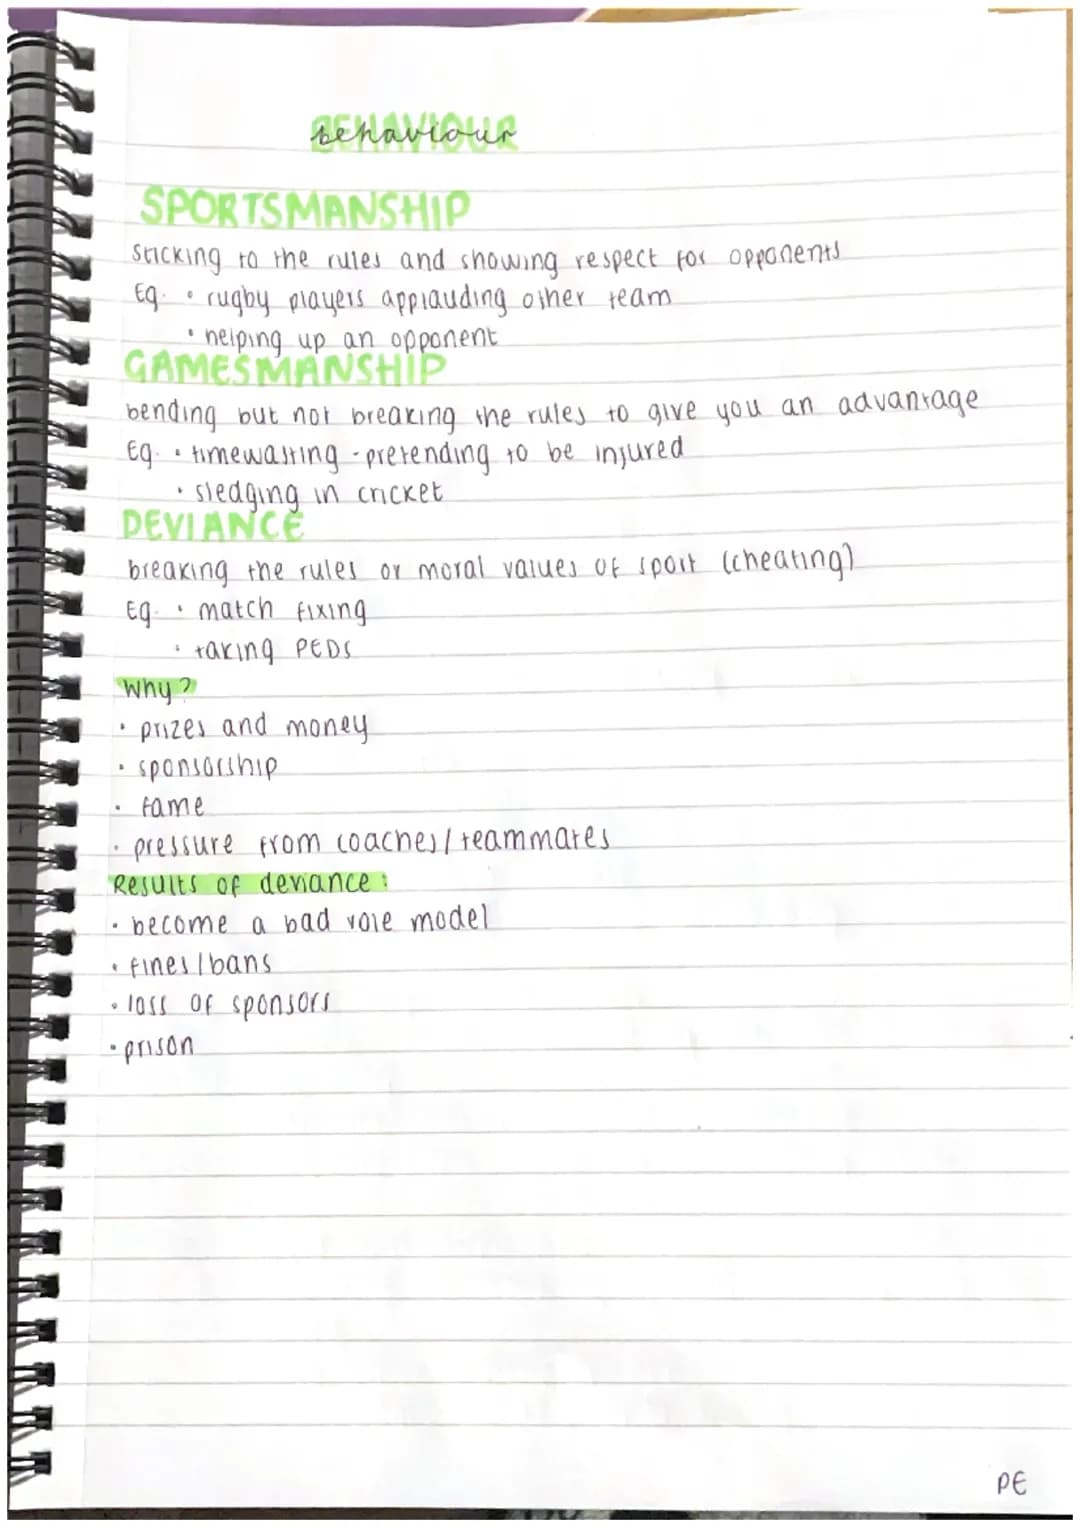 BEHAVIOUR
behaviour
SPORTSMANSHIP
sticking to the rules and showing respect for opponents
Eg. • rugby players applauding other team
• helping up an opponent
GAMESMANSHIP
bending but not breaking the rules to give you an advantage
Eg. • timewasting - pretending to be injured
• sledging in cricket
DEVIANCE
breaking the rules or moral values of sport (cheating)
Eg. • match fixing
• taking PEDs
Why?
• prizes and money
• sponsorship
• fame
• pressure from coaches/teammates
Results of deviance:
• become a bad role model
• fines/bans
• loss of sponsors
• prison
PE